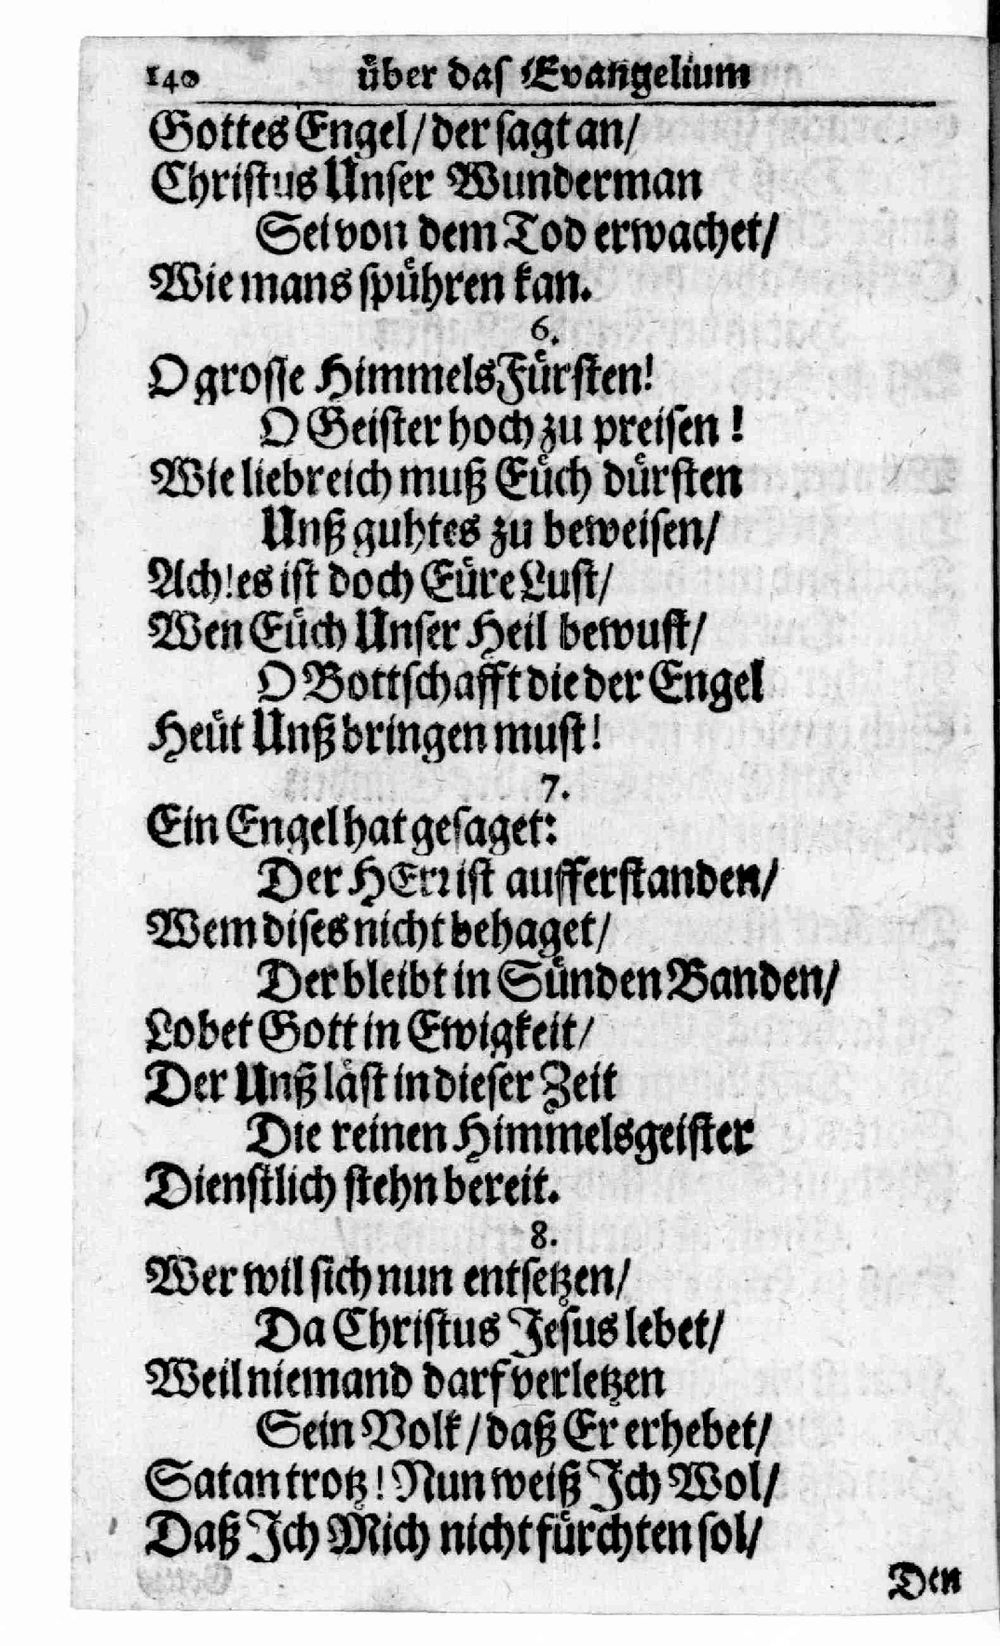 140 über das Evangelium
Gottes Engel/ der sagt an/
Christus Unser Wunderman
Sei von dem Tod erwachet/
Wie mans spühren kan.
6.
O grosse HimmelsFürsten!
O Geister hoch zu preisen!
Wie liebreich muß Euch dürsten
Unß guhtes zu beweisen/
Ach! es ist doch Eüre Lust/
Wen Eüch Unser Heil bewust/
O Bottschafft die der Engel
Heüt Unß bringen must!
7.
Ein Engel hat gesaget:
Der HErr ist aufferstanden/
Wem dises nicht behaget/
Der bleibt in Sünden Banden/
Lobet Gott in Ewigkeit/
Der Unß läst in dieser Zeit
Die reinen Himmelsgeister
Dienstlich stehn bereit.
8.
Wer wil sich nun entsetzen/
Da Christus Jesus lebet/
Weil niemand darf verletzen
Sein Volk/ daß Er erhebet/
Satan trotz! Nun weiß Ich Wol/
Daß Ich Mich nicht fürchten sol/
Den